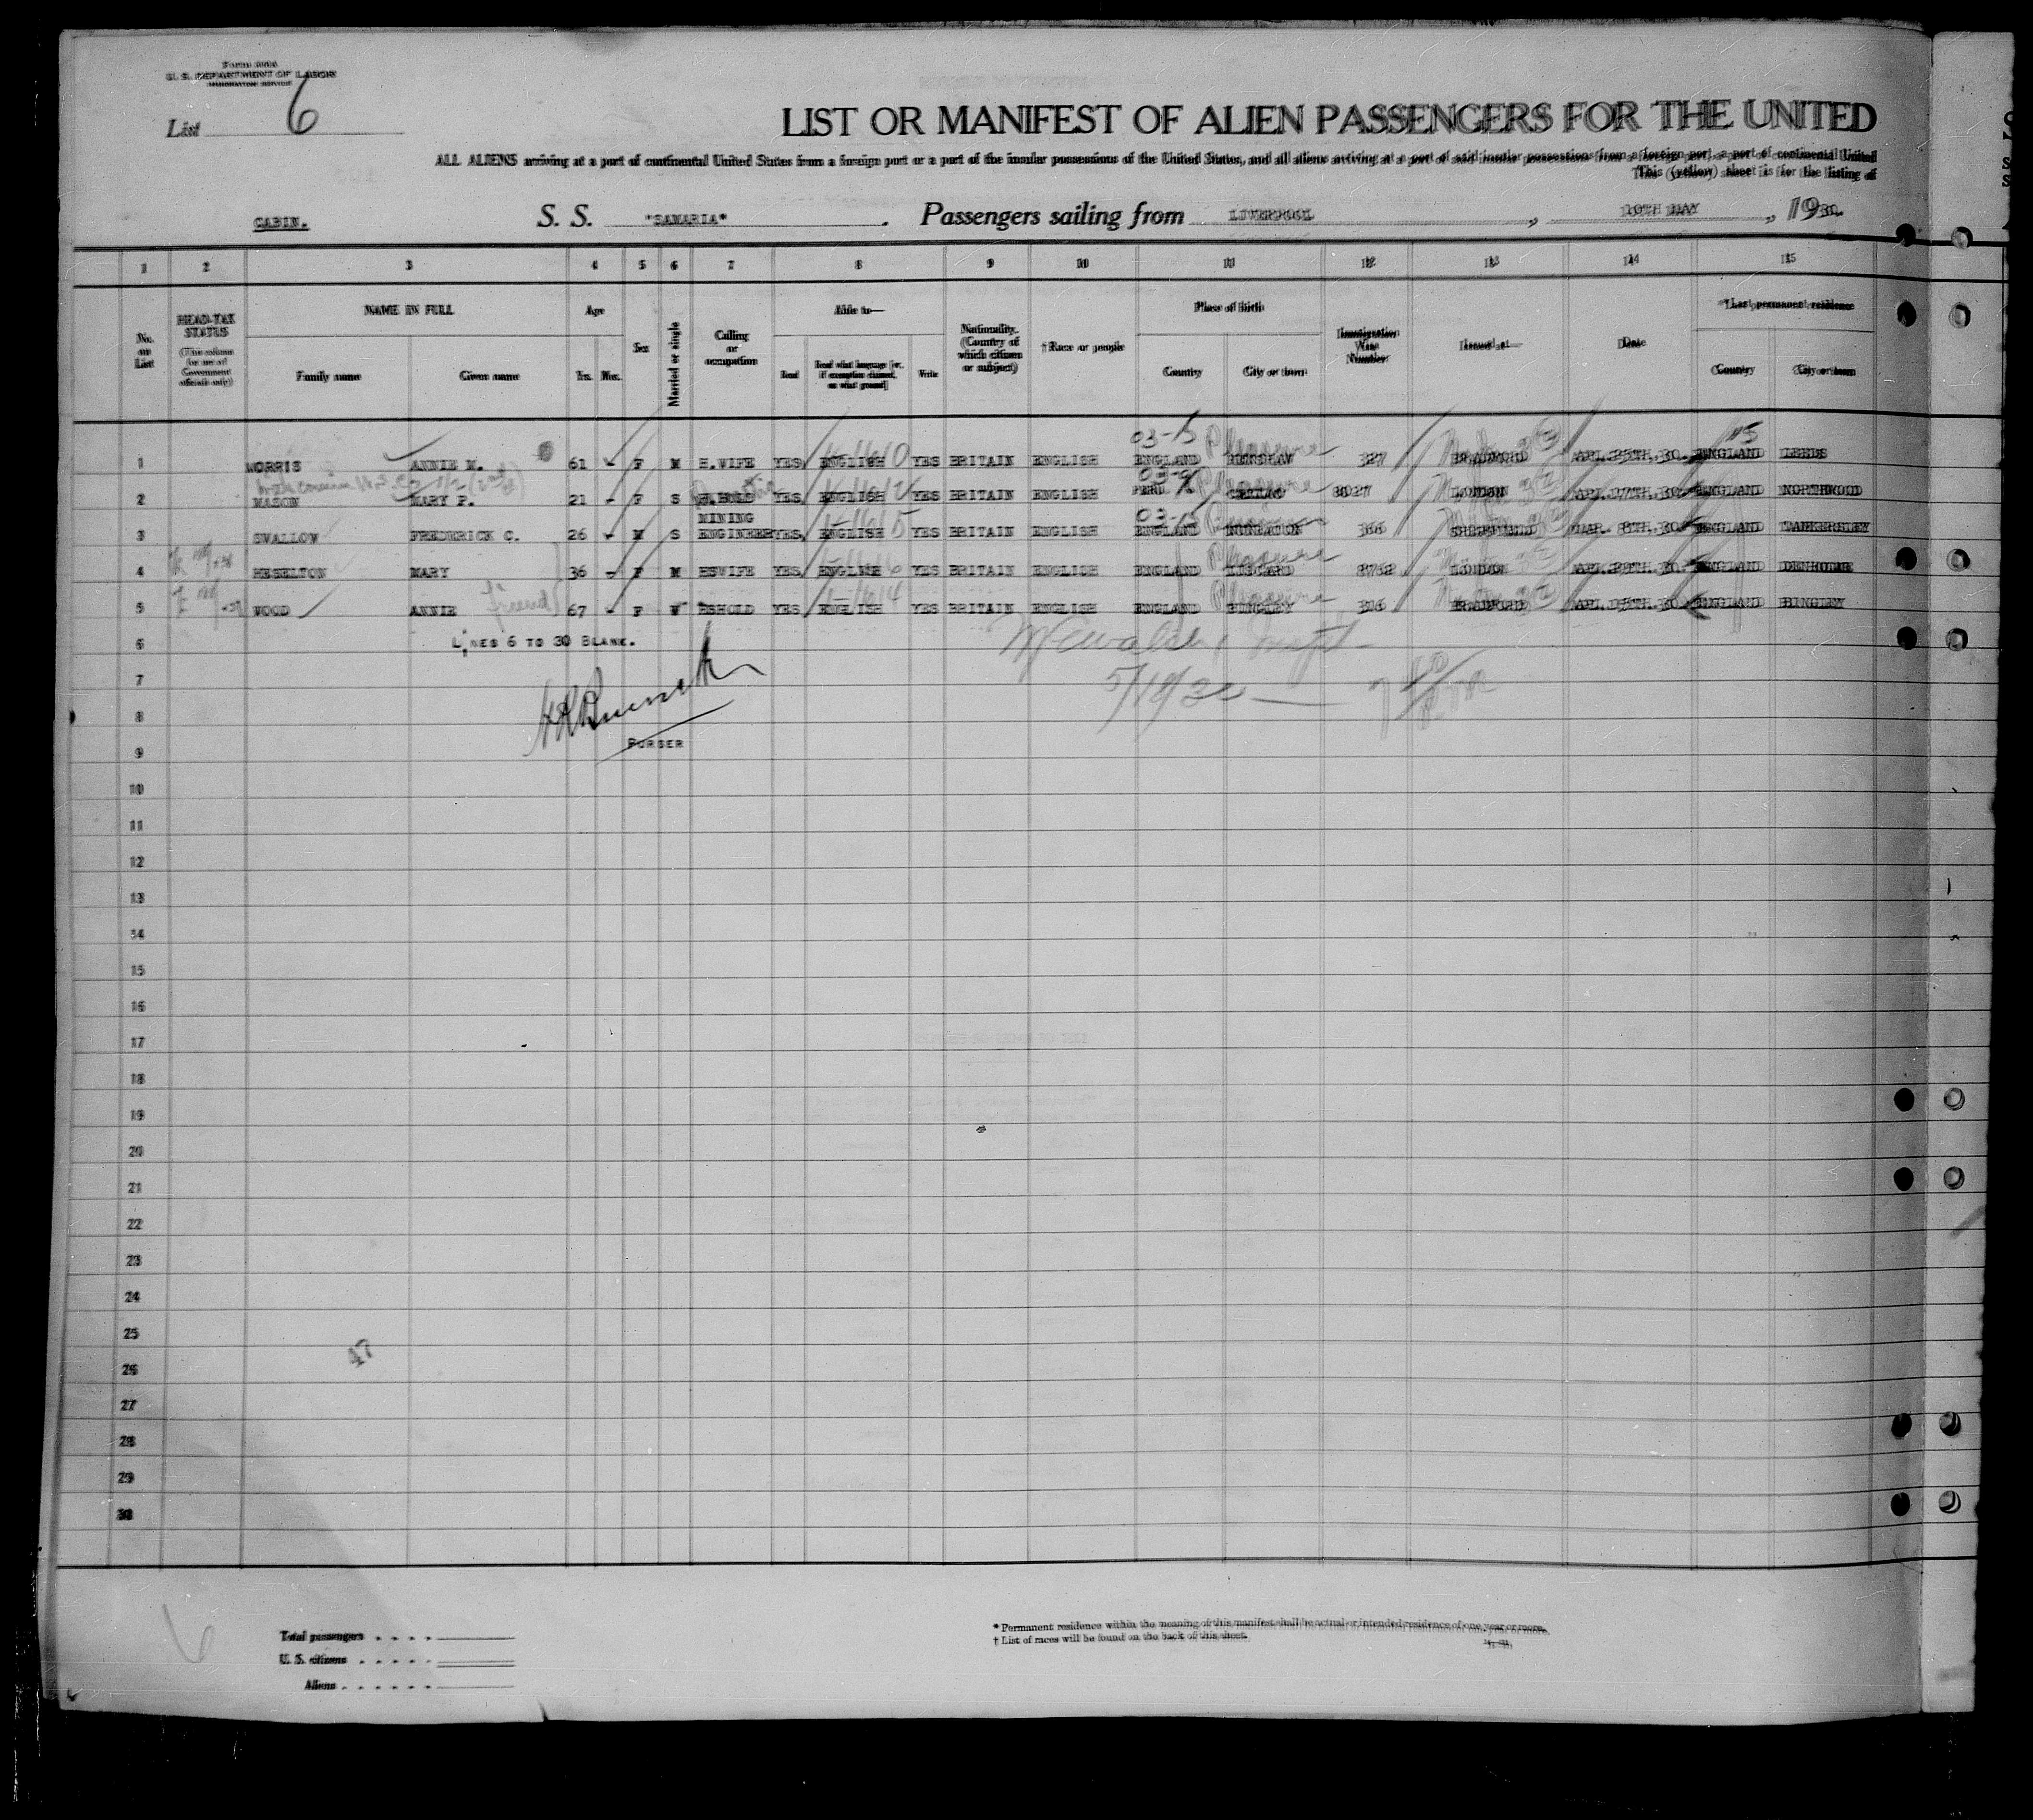 Form 500A
U. S. DEPARTMENT OF LABOR
IMMIGRATION SERVICE
List 6
LIST OR MANIFEST OF ALIEN PASSENGERS FOR THE UNITED
ALL ALIENS arriving at a port of continental United States from a foreign port or a port of the insular possessions of the United States, and all aliens arriving at a port of said insular possessions from a foreign port, a port of continental United
This (yellow) sheet is for the listing of
CABIN. S. S. "SAMARIA" . Passengers sailing from LIVERPOOL , 10TH MAY , 1930.
1 2 3 4 5 6 7 8 9 10 11 12 13 14 15
No. on List HEAD-TAX STATUS (This column for use of Government officials only) NAME IN FULL Family name Given name Age Yrs. Mos. Sex Married or single Calling or occupation Able to— Read Read what language [or, if exemption claimed, on what ground] Write Nationality. (Country of which citizen or subject) † Race or people Place of birth Country City or town Immigration Visa Number Issued at— Date *Last permanent residence Country City or town
1 MORRIS ANNIE M. 61 - F M H.WIFE YES ENGLISH YES BRITAIN ENGLISH 03-15 ENGLAND Pleasure 327 BRADFORD APL.25TH.30. ENGLAND LEEDS
2 MASON MARY P. 21 - F S H.HOLD YES ENGLISH YES BRITAIN ENGLISH PERU CALLAO Pleasure 8027 LONDON APL.17TH.30. ENGLAND NORTHWOOD
3 SWALLOW FREDERICK C. 26 - M S MINING ENGINEER YES ENGLISH YES BRITAIN ENGLISH 03-15 ENGLAND NUNEATON 366 SHEFFIELD MAR. 8TH.30. ENGLAND TANKERSLEY
4 HESELTON MARY 36 - F M HSWIFE YES ENGLISH YES BRITAIN ENGLISH ENGLAND LISCARD Pleasure 8762 LONDON APL.29TH.30. ENGLAND DENHOLME
5 WOOD ANNIE friend 67 - F W HSHOLD YES ENGLISH YES BRITAIN ENGLISH ENGLAND BINGLEY Pleasure 316 BRADFORD APL.15TH.30. ENGLAND BINGLEY
6 LINES 6 TO 30 BLANK.
7
8
9 PURSER
10
11
12
13
14
15
16
17
18
19
20
21
22
23
24
25
47
26
27
28
29
30
Total passengers
U. S. citizens
Aliens
* Permanent residence within the meaning of this manifest shall be actual or intended residence of one year or more.
† List of races will be found on the back of this sheet.